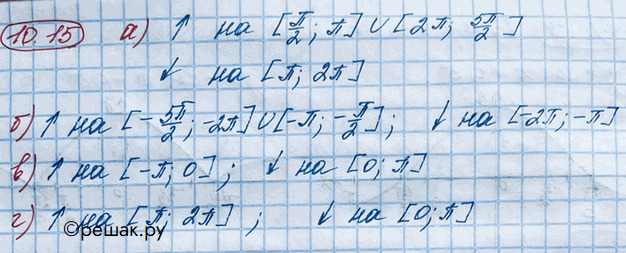 10.15 а) ↑ на [π/2; π] ∪ [2π; 5π/2]
↓ на [π; 2π]
б) ↑ на [-5π/2; -2π] ∪ [-π; -π/2]; ↓ на [-2π; -π]
в) ↑ на [-π; 0]; ↓ на [0; π]
г) ↑ на [π; 2π]; ↓ на [0; π]
©решак.ру